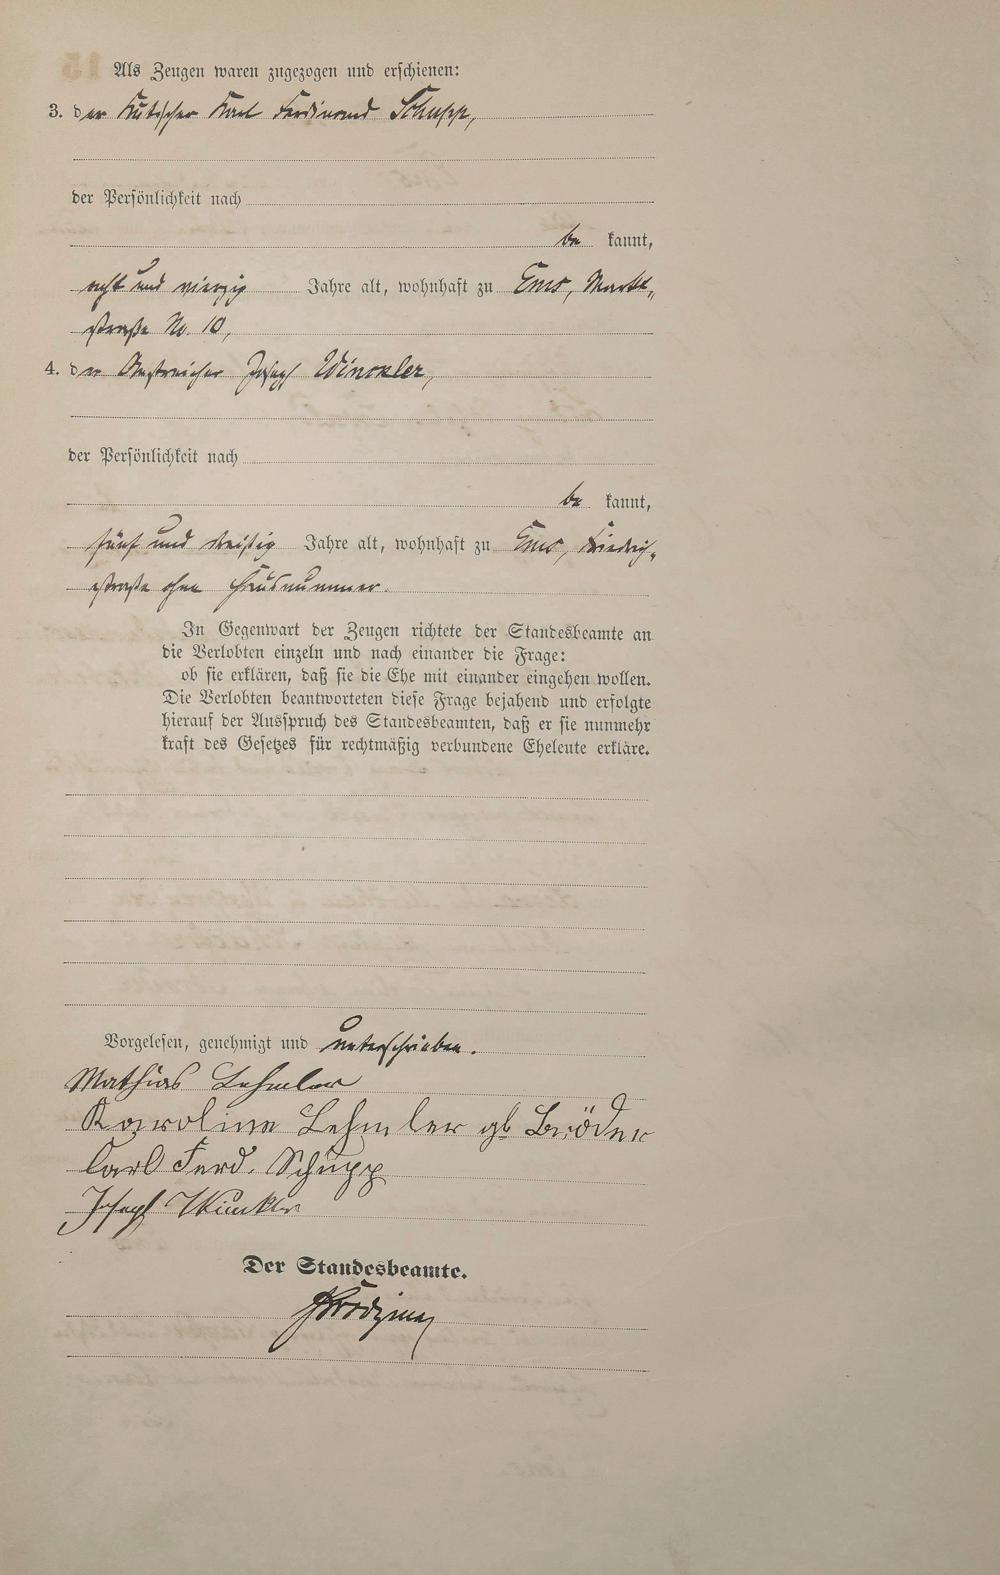 Als Zeugen waren zugezogen und erschienen:
3. der Kutscher Karl Ferdinand Schupp,
der Persönlichkeit nach
be kannt,
acht und vierzig Jahre alt, wohnhaft zu Ems, Markt„
straße No. 10,
4. der Anstreicher Joseph Winckler,
der Persönlichkeit nach
be kannt,
fünf und dreißig Jahre alt, wohnhaft zu Ems, Friedrich„
straße ohne Hausnummer.
In Gegenwart der Zeugen richtete der Standesbeamte an
die Verlobten einzeln und nach einander die Frage:
ob sie erklären, daß sie die Ehe mit einander eingehen wollen.
Die Verlobten beantworteten diese Frage bejahend und erfolgte
hierauf der Ausspruch des Standesbeamten, daß er sie nunmehr
kraft des Gesetzes für rechtmäßig verbundene Eheleute erkläre.
Vorgelesen, genehmigt und unterschrieben.
Mathias Lehmler
Karoline Lehmler gb Bröder
Carl Ferd. Schupp
Joseph Winkler
Der Standesbeamte.